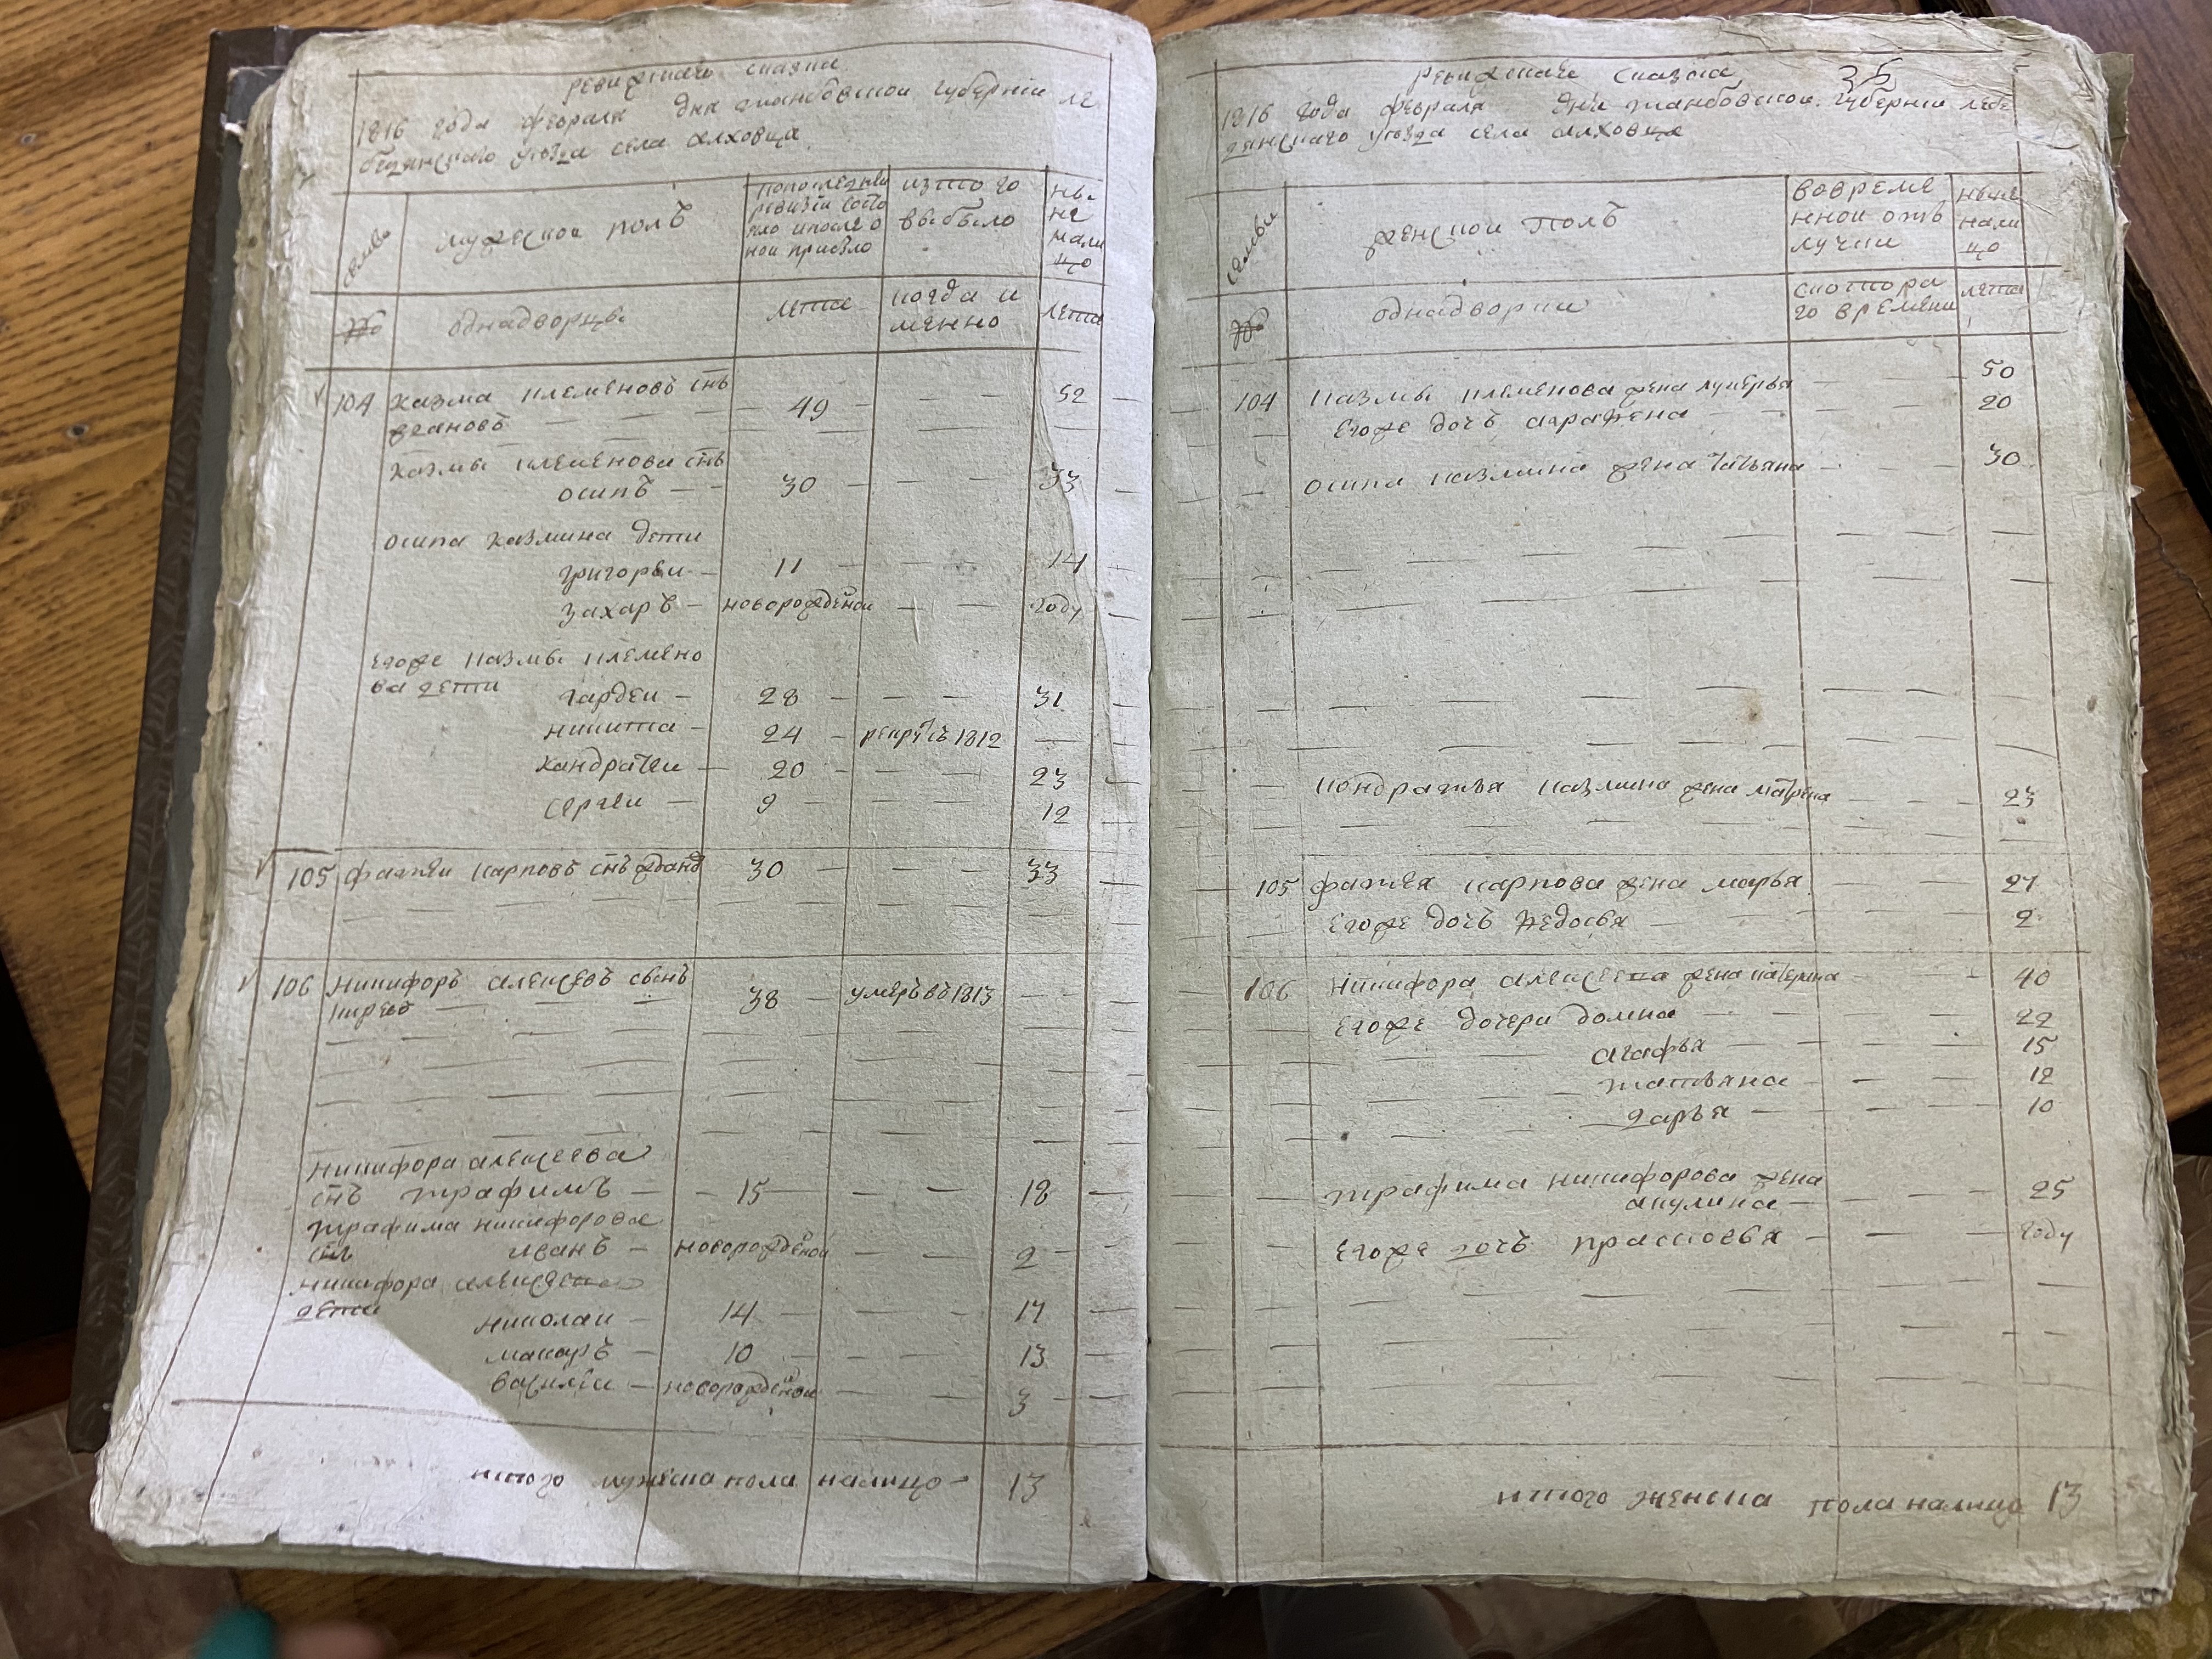 ревижская сказка
1816 года февраля дня танбовской губернiи ле
бедянского уезда села ялховца
семьи
мужеской полъ
попоследнеи
ревизiи состо
яло ипосле о
нои прибыло
изтого
выбыло
ны
не
нали
цо
№
однадворцы
лета
когда и
менно
лета
104 казма клеменовъ снъ
49 52
казмы клеменова снъ
осипъ — 30 33
осипа казмина дети
григореи — 11 14
захаръ — новорожденои году
егоже казмы клемено
ва дети
гардеи — 28 31
никита — 24 — рекрутъ 1812
кандратеи — 20 23
сергеи — 9 12
105 фатеи карповъ снъ 30 33
106 никифоръ алексевъ сынъ
38 — умеръ въ 1813
никифора алексеева
снъ трафимъ — 15 18
трафима никифорова
снъ иванъ — новорожденои 2
никифора алексева
дети
николаи — 14 17
макаръ — 10 13
василiи — новорожденои 3
итого мужеска пола налицо — 13
ревижская сказка
35
1816 года февраля дня танбовской губернiи лебе
дянского уезда села ялховца
семьи
женской полъ
вовреме
нной отъ
лучки
ныне
нали
цо
№
однадворки
скотора
го времени
лета
104 казмы клеменова жена лукерья 50
егоже дочь аграфена 20
осипа казмина жена татьяна 30
кондратья казмина жена матрена 23
105 фатея карпова жена марья 27
егоже дочь федосья 2
106 никифора алексева жена катерина 40
егоже дочери домна 22
агафья 15
татьяна 12
дарья 10
трафима никифорова жена
акулина 25
егоже дочь прасковья году
итого женска пола налицо 13